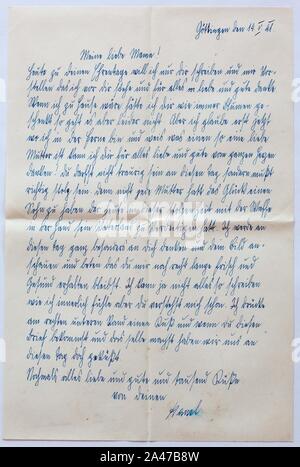 Göttingen den 14.V.41
Meine liebe Mama!
Heute zu deinem Ehrentage will ich nun dir schreiben und mir vor-
stellen daß ich vor dir stehe und für alles Liebe und gute danke
Wenn ich zu Hause wäre hätte ich dir wie immer Blumen ge-
schenkt so geht es aber leider nicht. Aber ich glaube erst jetzt
wo ich in der Ferne bin und weiß was einen so eine liebe
Mutter ist kann ich dir für alles liebe und gute von ganzen Herzen
danken. du darfst nicht traurig sein an diesen tag, sondern mußt
richtig stolz sein denn nicht jede Mutter hat das Glück einen
Sohn zu haben der
in der Hand sein Vaterland zu verteidigen hat. Ich werde an
diesen tag ganz besonders an dich denken und dein Bild an-
schauen und beten das du mir noch recht lange frisch und
Gesund erhalten bleibst. Ich kann ja nicht alles so schreiben
wie ich innerlich fühle aber du verstehst mich schon. Ich drücke
am rechten unteren Rand einen Kuß und wenn du diesen
Brief bekommst und das selbe machst haben wir uns an
diesen tag doch geküßt.
Nochmals alles liebe und gute und tausend Küße
von deinen
alamy
alamy stock photo
2A47B8W